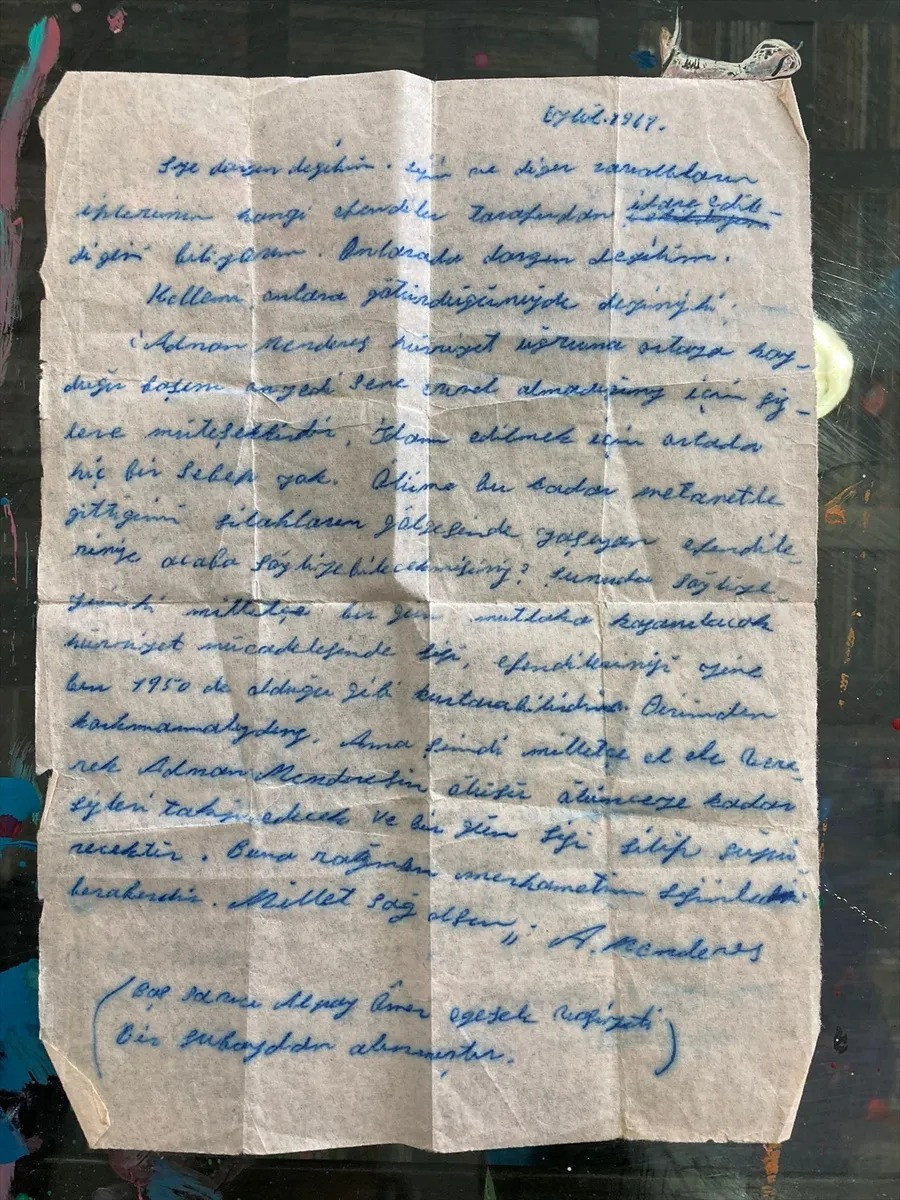 Eylül.1961.
Size dargın değilim. Sizin ve diğer zavallıların
iplerinin hangi efendiler tarafından idare edil-
diğini biliyorum. Onlarada dargın değilim.
Kellemi onlara götürdüğünüzde deyiniz ki;
Adnan Menderes hürriyet uğruna ortaya koy-
duğu başını onyedi sene evvel almadığınız için siz-
lere müteşekkirdir. İdam edilmek için ortada
hiç bir sebep yok. Ölüme bu kadar metanetle
gittiğimi silahların gölgesinde yaşıyan efendile-
rinize acaba söyliyebilecekmisiniz? Şunuda söyliye-
yimki milletçe bir gün mutlaka kazanılacak
hürriyet mücadelesinde sizi, efendilerinizi yine
ben 1950 de olduğu gibi kurtarabilirdim. Dirimden
korkmamalıydınız. Ama şimdi milletçe el ele vere-
rek Adnan Menderesin ölüsü ölünceye kadar
sizleri takip edecek ve bir gün sizi silip süpü
recektir. Buna rağmen merhametim sizinledir
beraberdir. Millet sağ olsun,, A. Menderes
(Baş savcı Altay Ömer egesel
Bir subaydan alınmıştır.)